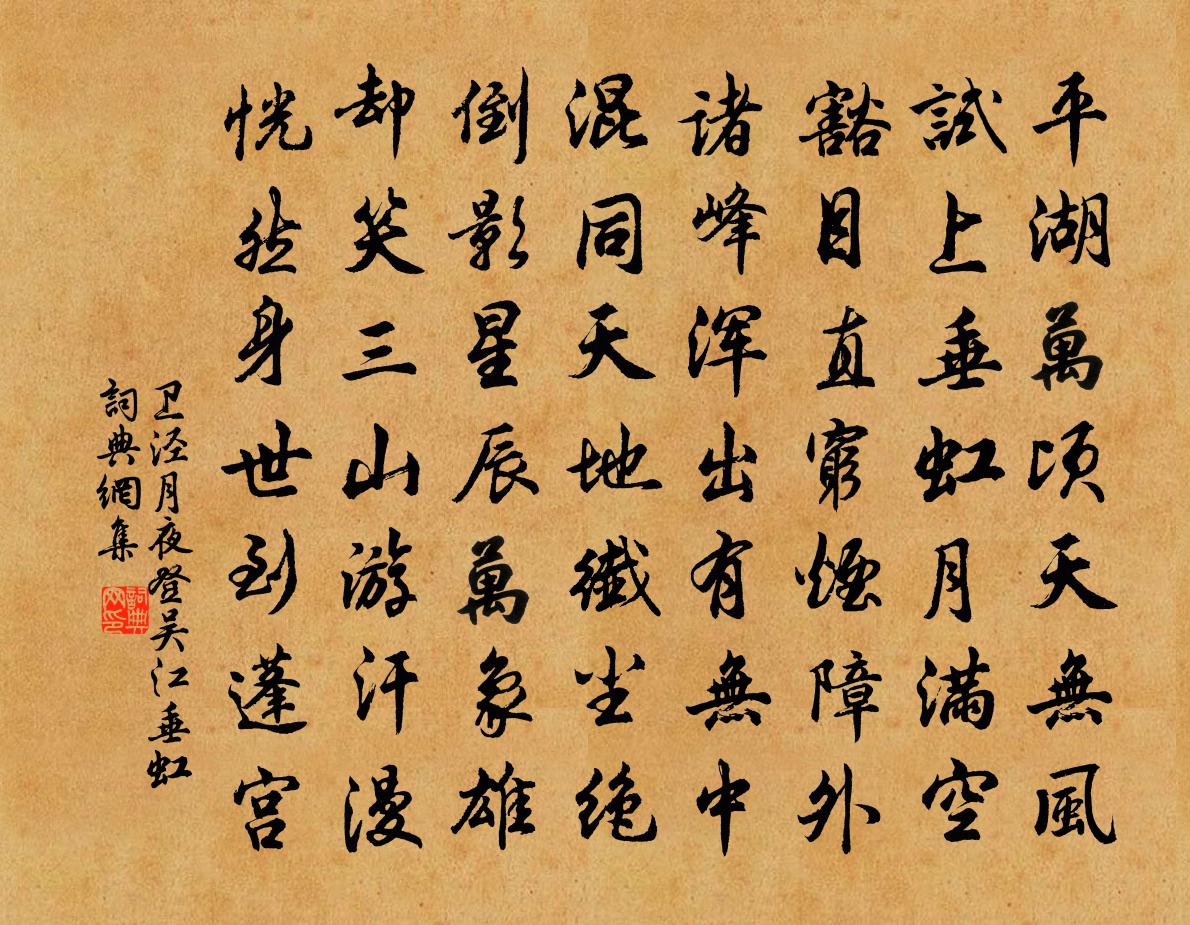 平湖萬頃天無風
試上垂虹月滿空
豁目直窮煙障外
诸峰浑出有無中
混同天地纖尘绝
倒影星辰萬象雄
却笑三山游汗漫
恍然身世到蓬宫
卫泾月夜登吴江垂虹
詞典網集
詞典网印